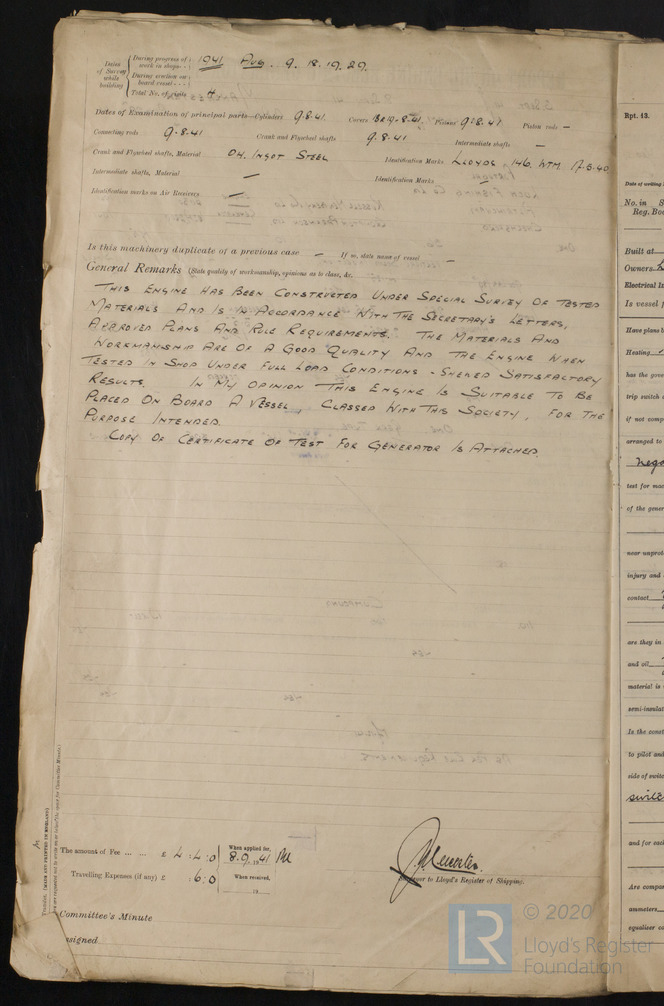 Dates of Survey while building
During progress of work in shops - - 1941 Aug. 9. 18. 19. 29.
During erection on board vessel - - -
Total No. of visits 4
Dates of Examination of principal parts—Cylinders 9.8.41. Covers 18 & 19-8-41. Pistons 9.8.41. Piston rods —
Connecting rods 9.8.41 Crank and Flywheel shafts 9.8.41 Intermediate shafts —
Crank and Flywheel shafts, Material O.H. Ingot Steel Identification Marks Lloyds 146. WTM.
Intermediate shafts, Material — Identification Marks —
Identification marks on Air Receivers —
Is this machinery duplicate of a previous case — If so, state name of vessel —
General Remarks (State quality of workmanship, opinions as to class, &c.
This Engine Has Been Constructed Under Special Survey Of Tested
Materials And Is In Accordance With The Secretary's Letters,
Approved Plans And Rule Requirements. The Materials And
Workmanship Are Of A Good Quality And The Engine When
Tested In Shop Under Full Load Conditions - Shewed Satisfactory
Results. In My Opinion This Engine Is Suitable To Be
Placed On Board A Vessel Classed With This Society, For The
Purpose Intended.
Copy Of Certificate Of Test For Generator Is Attached.
The amount of Fee ... ... £ 4 : 4 : 0 When applied for, 8.9.1941
Travelling Expenses (if any) £ : 6 : 0 When received, 19
Surveyor to Lloyd's Register of Shipping.
Committee's Minute
Assigned
Rpt. 13.
Date of writing
No. in
Reg. Boo
Built at
Owners
Electrical I
Is vessel f
Have plans b
Heating
has the gove
trip switch
if not comp
arranged to
nega
test for mac
of the gener
near unprot
injury and
contact
are they in
and oil
material is
semi-insulat
Is the const
to pilot and
side of switc
switc
and for each
Are compas
ammeters
equaliser co
© 2020
Lloyd's Register
Foundation
LR